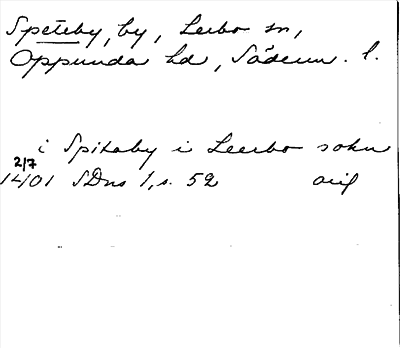 Speteby, by, Lerbo sn,
Oppunda hd, Söderm. l.
i Spitaby i Leerbo sokn
2/7
1401 SDns 1, s. 52 orig